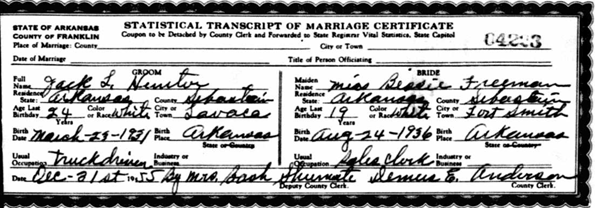 STATE OF ARKANSAS
COUNTY OF FRANKLIN
STATISTICAL TRANSCRIPT OF MARRIAGE CERTIFICATE
Coupon to be Detached by County Clerk and Forwarded to State Registrar Vital Statistics, State Capitol
Place of Marriage: County City or Town 04233
Date of Marriage Title of Person Officiating
GROOM BRIDE
Full Name Jack L. Maiden Name Miss Bessie Freeman
Residence State: Arkansas County Sebastian Residence State: Arkansas County Sebastain
Age Last Birthday 24 Color or Race White City or Town Lavaca Age Last Birthday 19 Color or Race White City or Town Fort Smith
Birth Date March-29-1931 Birth Place Arkansas Birth Date Aug-24-1936 Birth Place Arkansas
State or Country State or Country
Usual Occupation truck driver Industry or Business Usual Occupation Sales Clerk Industry or Business
Date Dec-21st 1955 By Mrs. Bash Shumate Demus E. Anderson
Deputy County Clerk. County Clerk.